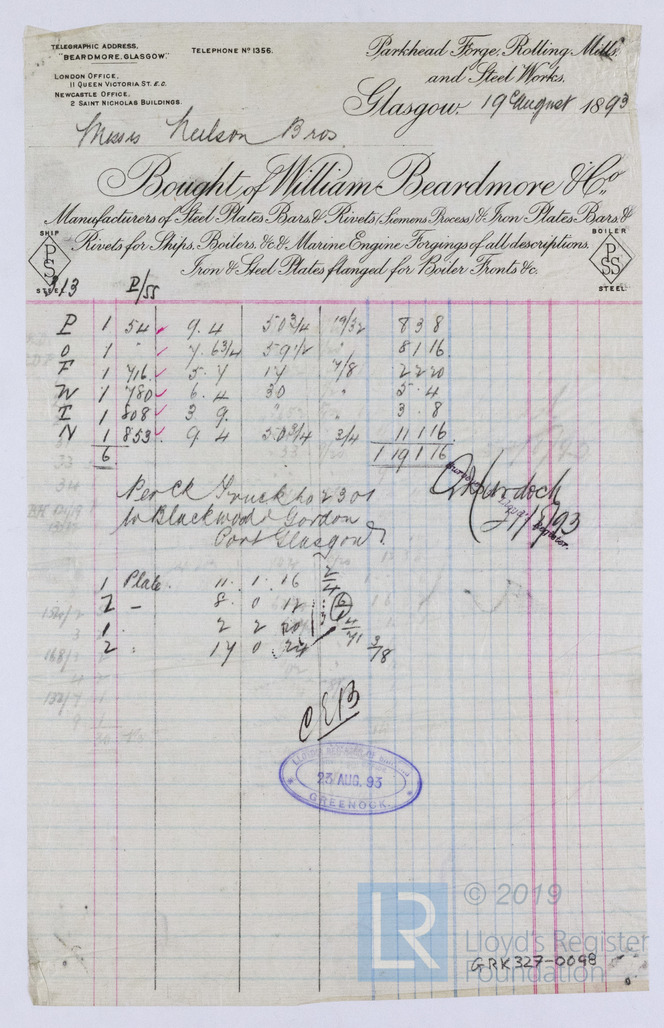 TELEGRAPHIC ADDRESS,
"BEARDMORE, GLASGOW."
TELEPHONE Nº 1356.
LONDON OFFICE,
11 QUEEN VICTORIA ST. E.C.
NEWCASTLE OFFICE,
2 SAINT NICHOLAS BUILDINGS.
Parkhead Forge, Rolling Mills,
and Steel Works,
Glasgow, 19 August 1893
Messrs Neilson Bros.
Bought of William Beardmore & Co.,
Manufacturers of Steel Plates, Bars & Rivets (Siemens Process) & Iron Plates, Bars &
Rivets for Ships, Boilers, &c & Marine Engine Forgings of all descriptions.
Iron & Steel Plates flanged for Boiler Fronts &c.
SHIP
PS
STEEL
BOILER
PSS
STEEL
P/SS
P 1 54 9.4 50 3/4 19/32 8 3 8
O 1 " 7.6 3/4 59 1/2 " 8 1 16
F 1 716 5.7 17 7/8 2 2 20
W 1 780 6.4 30 " 5 . 4
I 1 808 3 9 " " 3 . 8
N 1 853 9 4 50 3/4 3/4 11 1 16
6 1 19 1 16
Per Ck Truck no 2301
to Blackwood & Gordon
Port Glasgow
1 Plate 11 . 1 . 16
2 - 8 . 0 12
1 . 2 2 20
2 . 17 0 24
3/8
CEB
23 AUG. 93
GREENOCK.
LR
© 2019
Lloyd's Register
Foundation
GRK327-0098